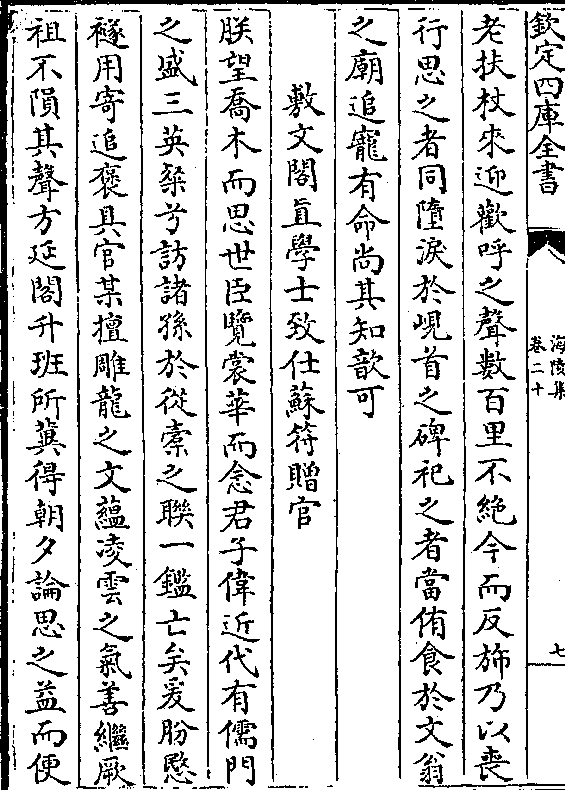 欽定四庫全書
海陵集
卷二十
七
老扶杖來迎歡呼之聲數百里不絶今而反斾乃以喪
行思之者同墮淚於峴首之碑祀之者當侑食於文翁
之廟追寵有命尚其知歆可
敷文閣直學士致仕蘇符贈官
朕望喬木而思世臣覽裳華而念君子偉近代有儒門
之盛三英粲兮訪諸孫於從橐之聯一鑑亡矣爰肦愍
襚用寄追褒具官某擅雕龍之文藴凌雲之氣善繼厥
祖不隕其聲方延閣升班所冀得朝夕論思之益而便